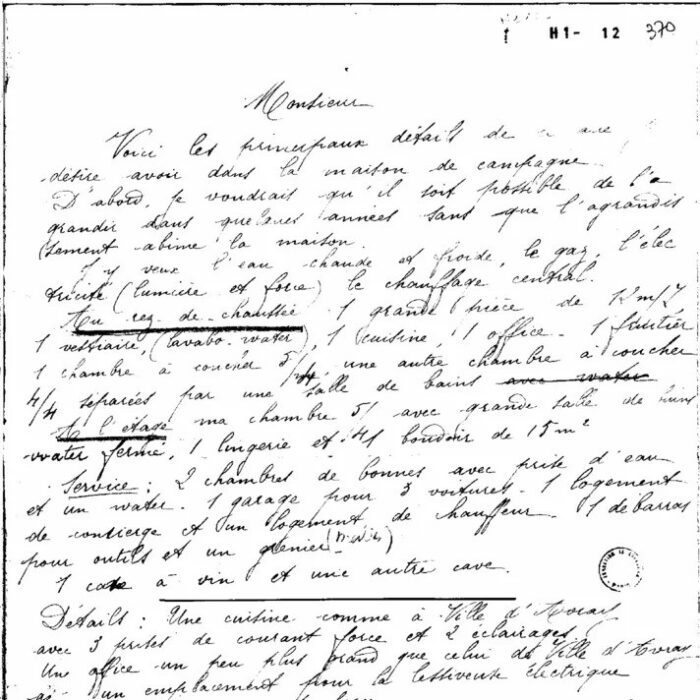 H1- 12 370
Monsieur
Voici les principaux détails de
désire avoir dans la maison de campagne.
D'abord, je voudrais qu'il soit possible de l'a
grandir dans quelques années sans que l'agrandis
sement abime la maison.
J'y veux l'eau chaude et froide, le gaz, l'élec
tricité (lumière et force) le chauffage central.
Au rez de chaussée 1 grande pièce de 12 m/7
1 vestiaire, (lavabo-water), 1 cuisine, 1 office - 1 fruitier
1 chambre à coucher 5/4, une autre chambre à coucher
4/4 séparées par une salle de bains avec water
A l'étage ma chambre 5/ avec grande salle de bains
water fermé, 1 lingerie et 1 boudoir de 15 m²
Service : 2 chambres de bonnes avec prise d'eau
et un water. 1 garage pour 3 voitures. 1 logement
de concierge et un logement de chauffeur 1 débarras
pour outils et un grenier
1 cave à vin et une autre cave.
Détails : Une cuisine comme à Ville d'Avray
avec 3 prises de courant force et 2 éclairages
Une office un peu plus grand que celui de Ville d'Avray
un emplacement pour la lessiveuse électrique